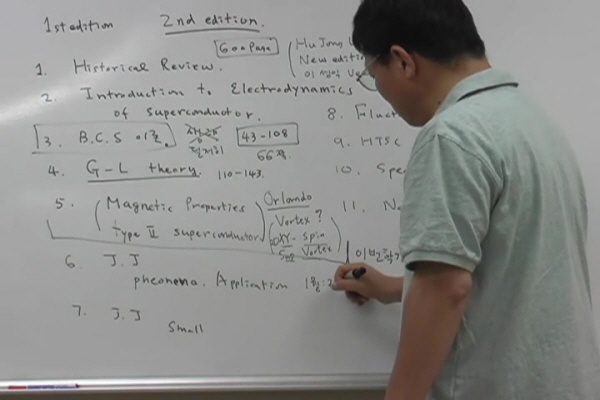 1st edition 2nd edition.
600 page
Hu Jong L
New edition
1. Historical Review.
2. Introduction to Electrodynamics
of superconductor.
3. B.C.S 이론 43-108
66쪽
4. G-L theory. 110-143.
5. Magnetic Properties
Type II superconductor
Orlando
Vortex?
XY-spin
Vortex
6. J.J
pheonena. Application 1월:2
7. J.J
Small
8. Fluct
9. HTSC
10. Spe
11. N